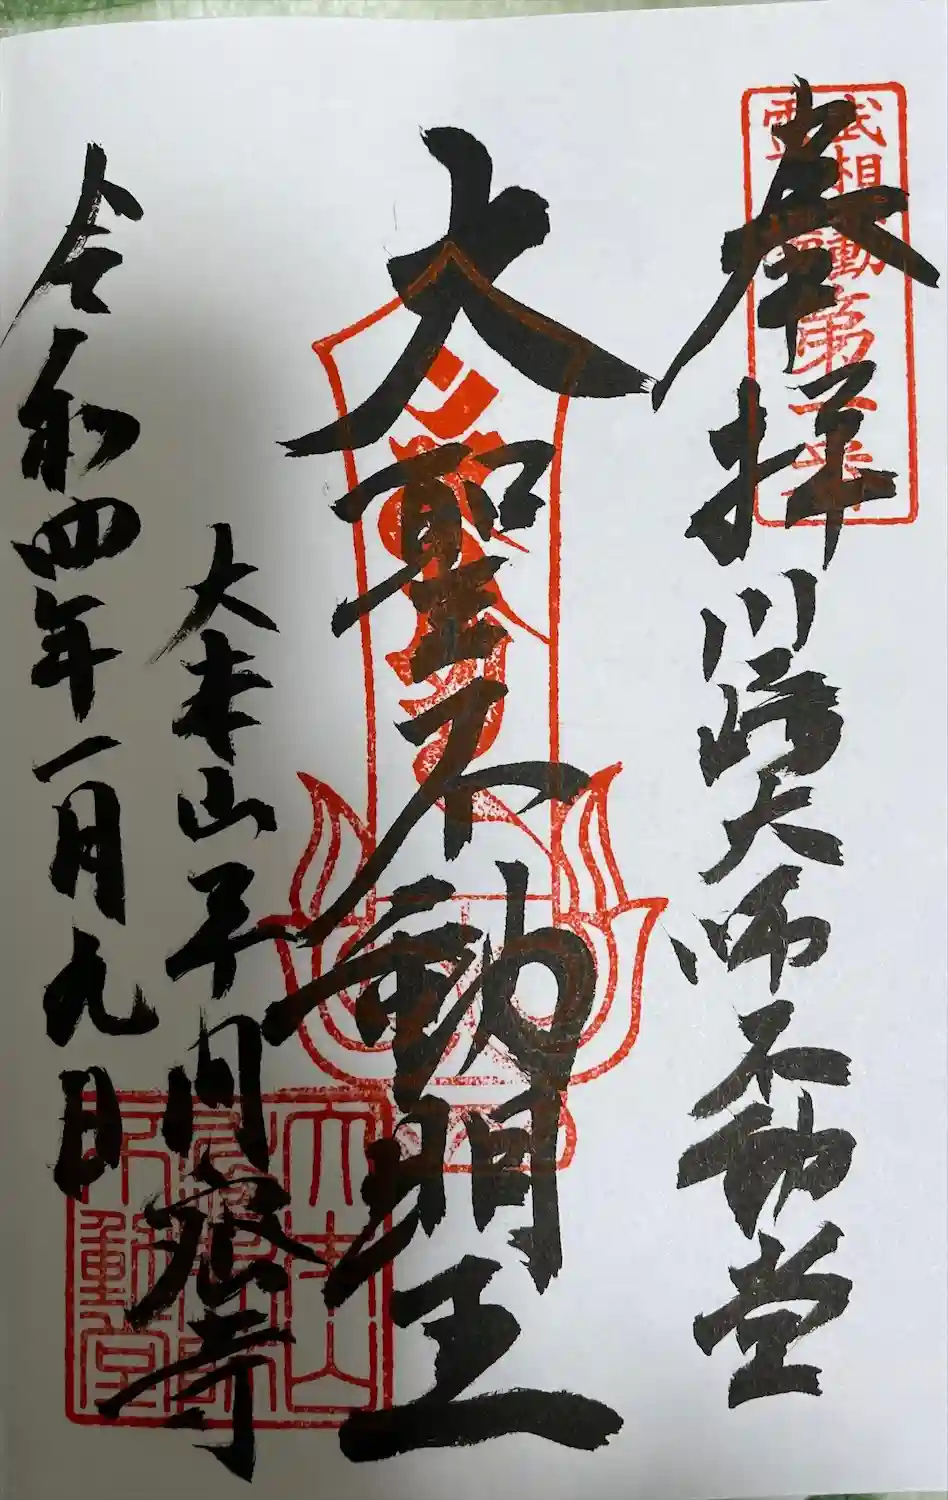 奉拝 川崎大師不動堂
大聖不動明王
大本山平間寺
令和四年一月九日
武相不動第一番
大本山
不動堂